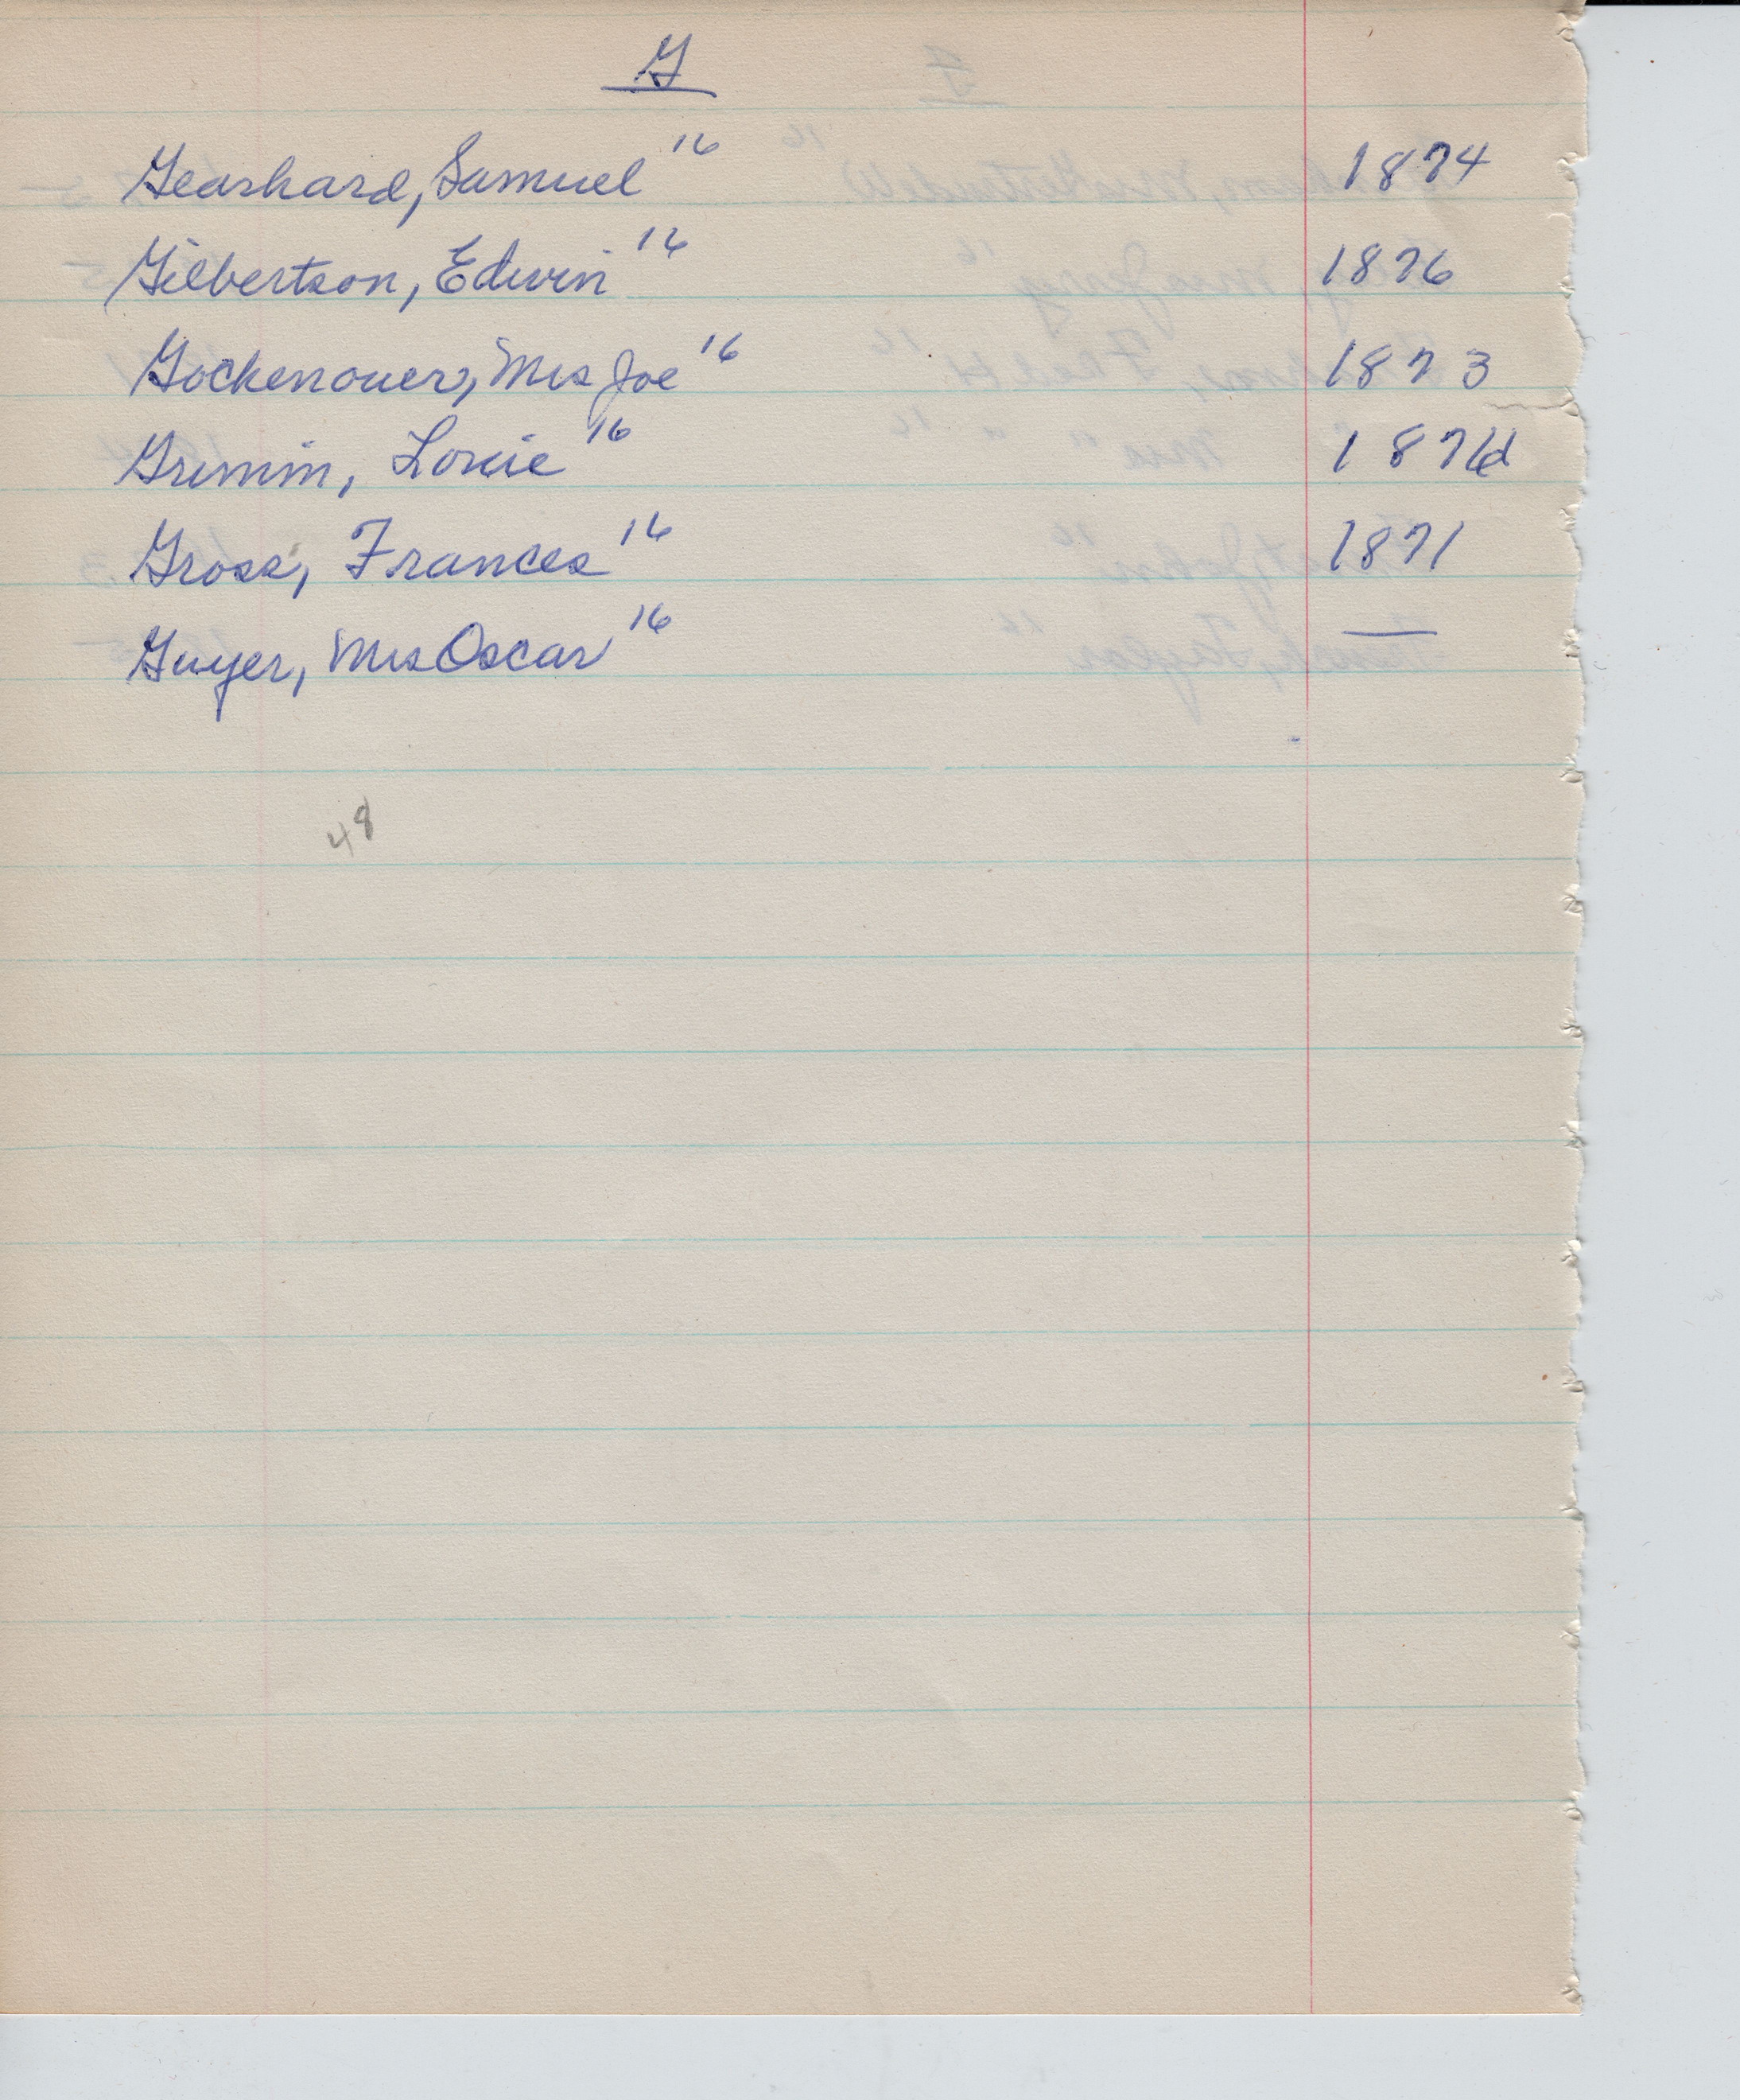 G
Gearhard, Samuel 16 1874
Gilbertson, Edwin 16 1876
Gockenouer, Mrs Joe 16 1873
Grimm, Louie 16
Gross, Frances 16 1871
Guyer, Mrs Oscar 16 —
48